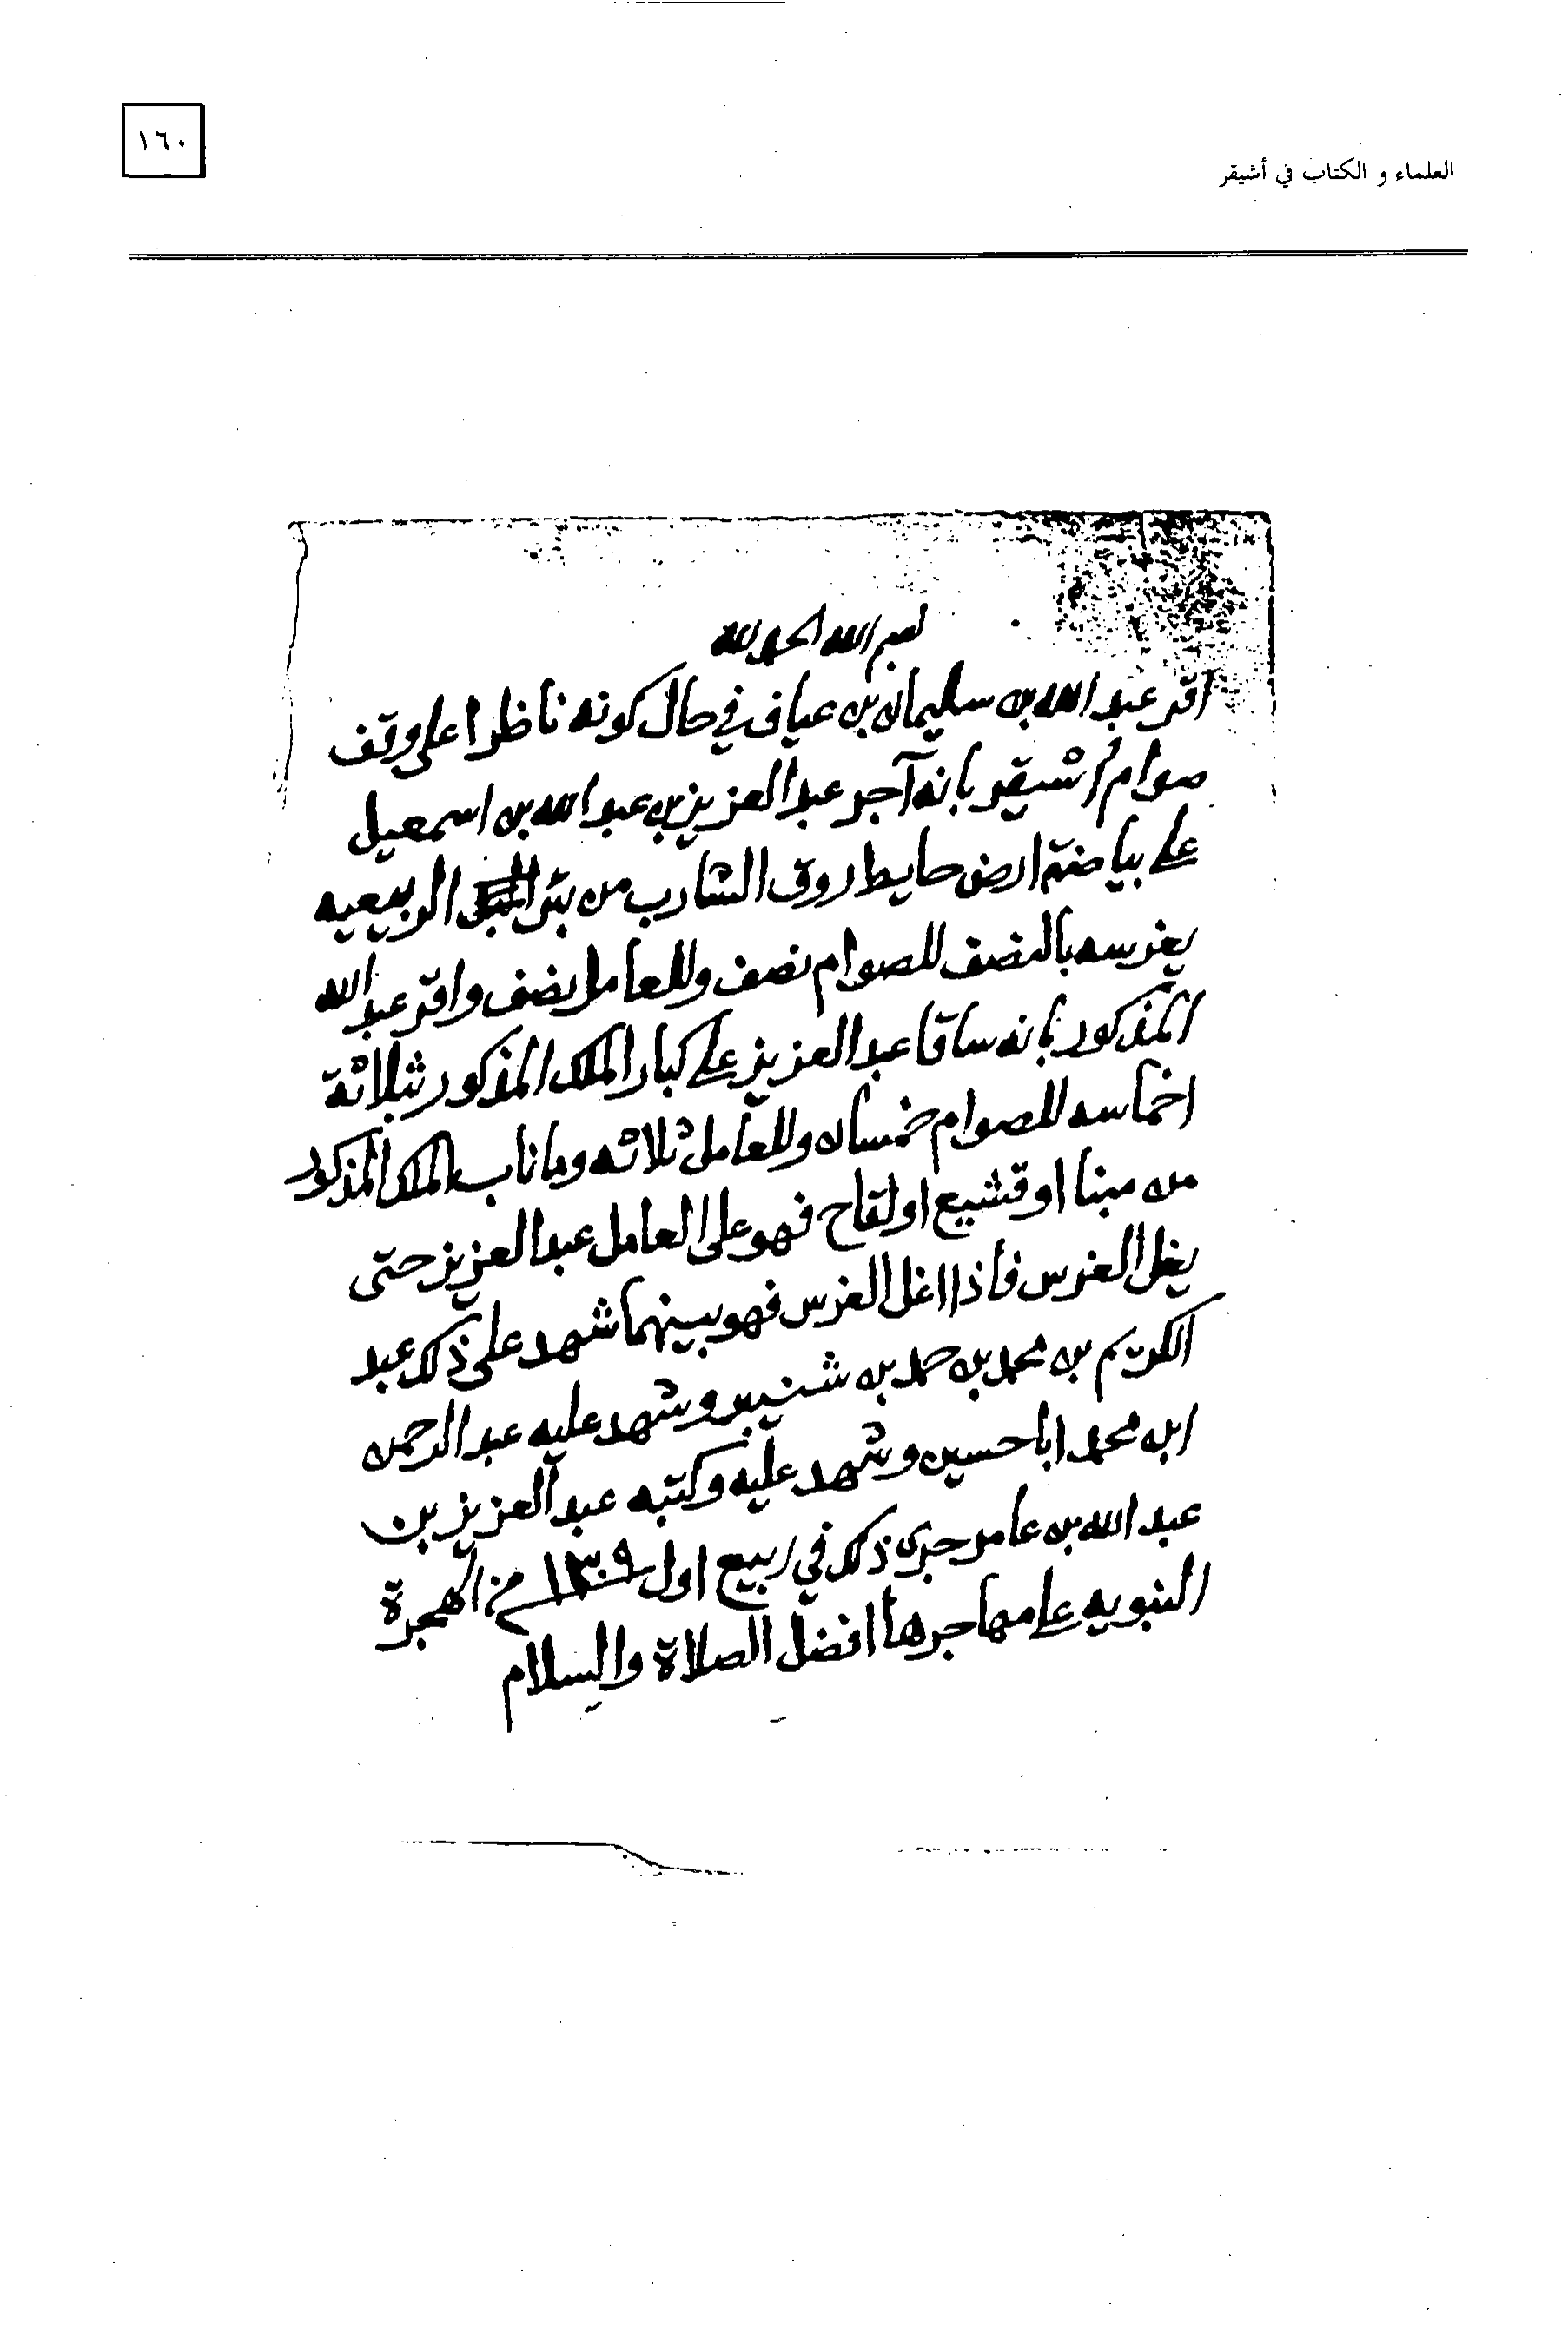 ١٦٠
العلماء و الكتاب في أشيقر
بسم الله الحمد لله
اقر عبد الله بن سليمان بن عياف في حال كونه ناظرا على وقف
صوام اشيقر بانه آجر عبد العزيز بن عبد الله بن اسمعيل
على بياضة ارض حايط اروق الشارب من بئر الربيعيه
يغرسه بالنصف للصوام نصف وللعامل نصف واقر عبد الله
المذكور بانه ساقا عبد العزيز على كبار الملك المذكور بثلاثة
اخماسه للصوام خمسان وللعامل ثلاثه وما ناب الملك المذكور
من مبنا او قشيع او لقاح فهو على العامل عبد العزيز حتى
يغل الغرس فأذا اغل الغرس فهو بينهما شهد على ذلك عبد
الكريم بن محمد بن حمد بن شنيبر وشهد عليه عبد الرحمن
ابن محمد ابا حسين وشهد عليه وكتبه عبد العزيز بن
عبد الله بن عامر جرى ذلك في ربيع اول ١٣٠٩ من الهجرة
النبويه على مهاجرها افضل الصلاة والسلام